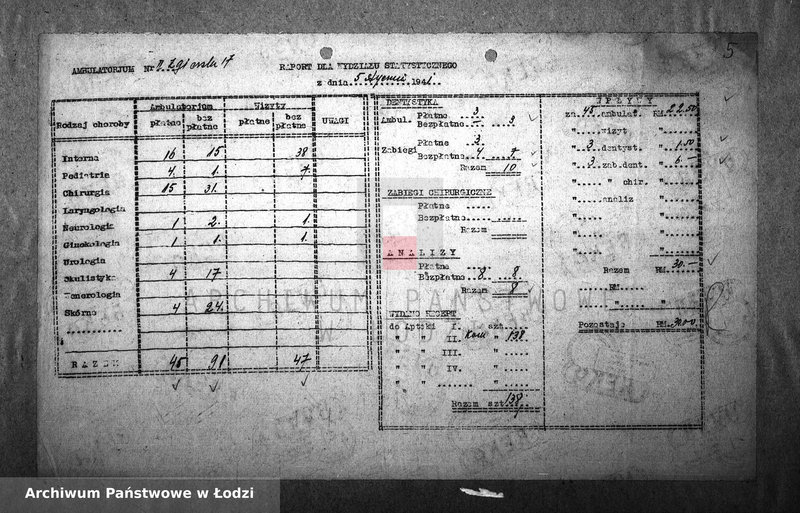 5
AMBULATORJUM Nr
RAPORT DLA WYDZIAŁU STATYSTYCZNEGO
z dnia 5 1941
Rodzaj choroby Ambulatorjum Wizyty UWAGI
płatne bez płatne płatne bez płatne
Interna 16 45 38
Pediatria 4. 1. 7.
Chirurgia 15 31.
Laryngologia
Neurologia 1 2. 1.
Ginekologia 1 1. 1.
Urologia
Okulistyka 4 17
Wenerologia
Skórne 4 24.
RAZEM 45 91 47
DENTYSTYKA
Ambul. Płatne 3
Bezpłatne — 3
Zabiegi Płatne 3
Bezpłatne 4 7
Razem 10
ZABIEGI CHIRURGICZNE
Płatne
Bezpłatne
Razem
ANALIZY
Płatne
Bezpłatne 8 8
Razem 8
WYDANO RECEPT
do Apteki I. szt.
" " II. " 138
" " III. "
" " IV. "
" " "
Razem szt. 138
WPŁYWY
za 45 ambulat. RM. 22.50
" wizyt "
" 3 dentyst. " 1.50
" 3 zab.dent. " 6.—
" " chir. "
" analiz "
" "
" "
" "
Razem RM. 30.—
"
"
Pozostaje RM. 30.00
ARCHIWUM PAŃSTWOWE
W ŁODZI
Archiwum Państwowe w Łodzi